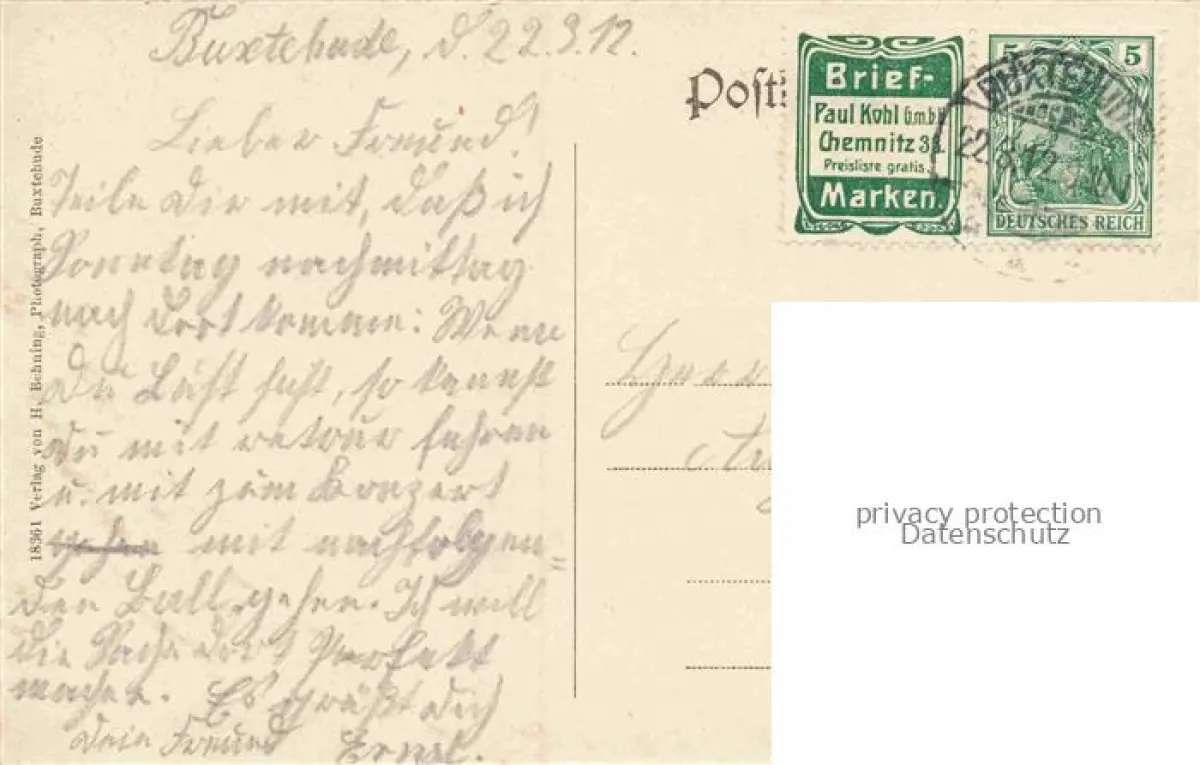 Buxtehude, d. 22.9.12.
Lieber Freund!
Teile dir mit, daß ich
Sonntag nachmittag
nach dort komme: Wenn
du Lust hast, so kannst
du mit retour fahren
u. mit zum Konzert
mit nachfolgen=
den Ball gehen. Ich will
die Sache dort Perfekt
machen. Es grüßt dich
dein Freund Ernst.
18361 Verlag von H. Behning, Photograph, Buxtehude
Brief-
Paul Kohl G.m.b.H
Chemnitz 33
Preisliste gratis.
Marken.
5 5
DEUTSCHES REICH
BUXTEHUDE
22.9.12
privacy protection
Datenschutz